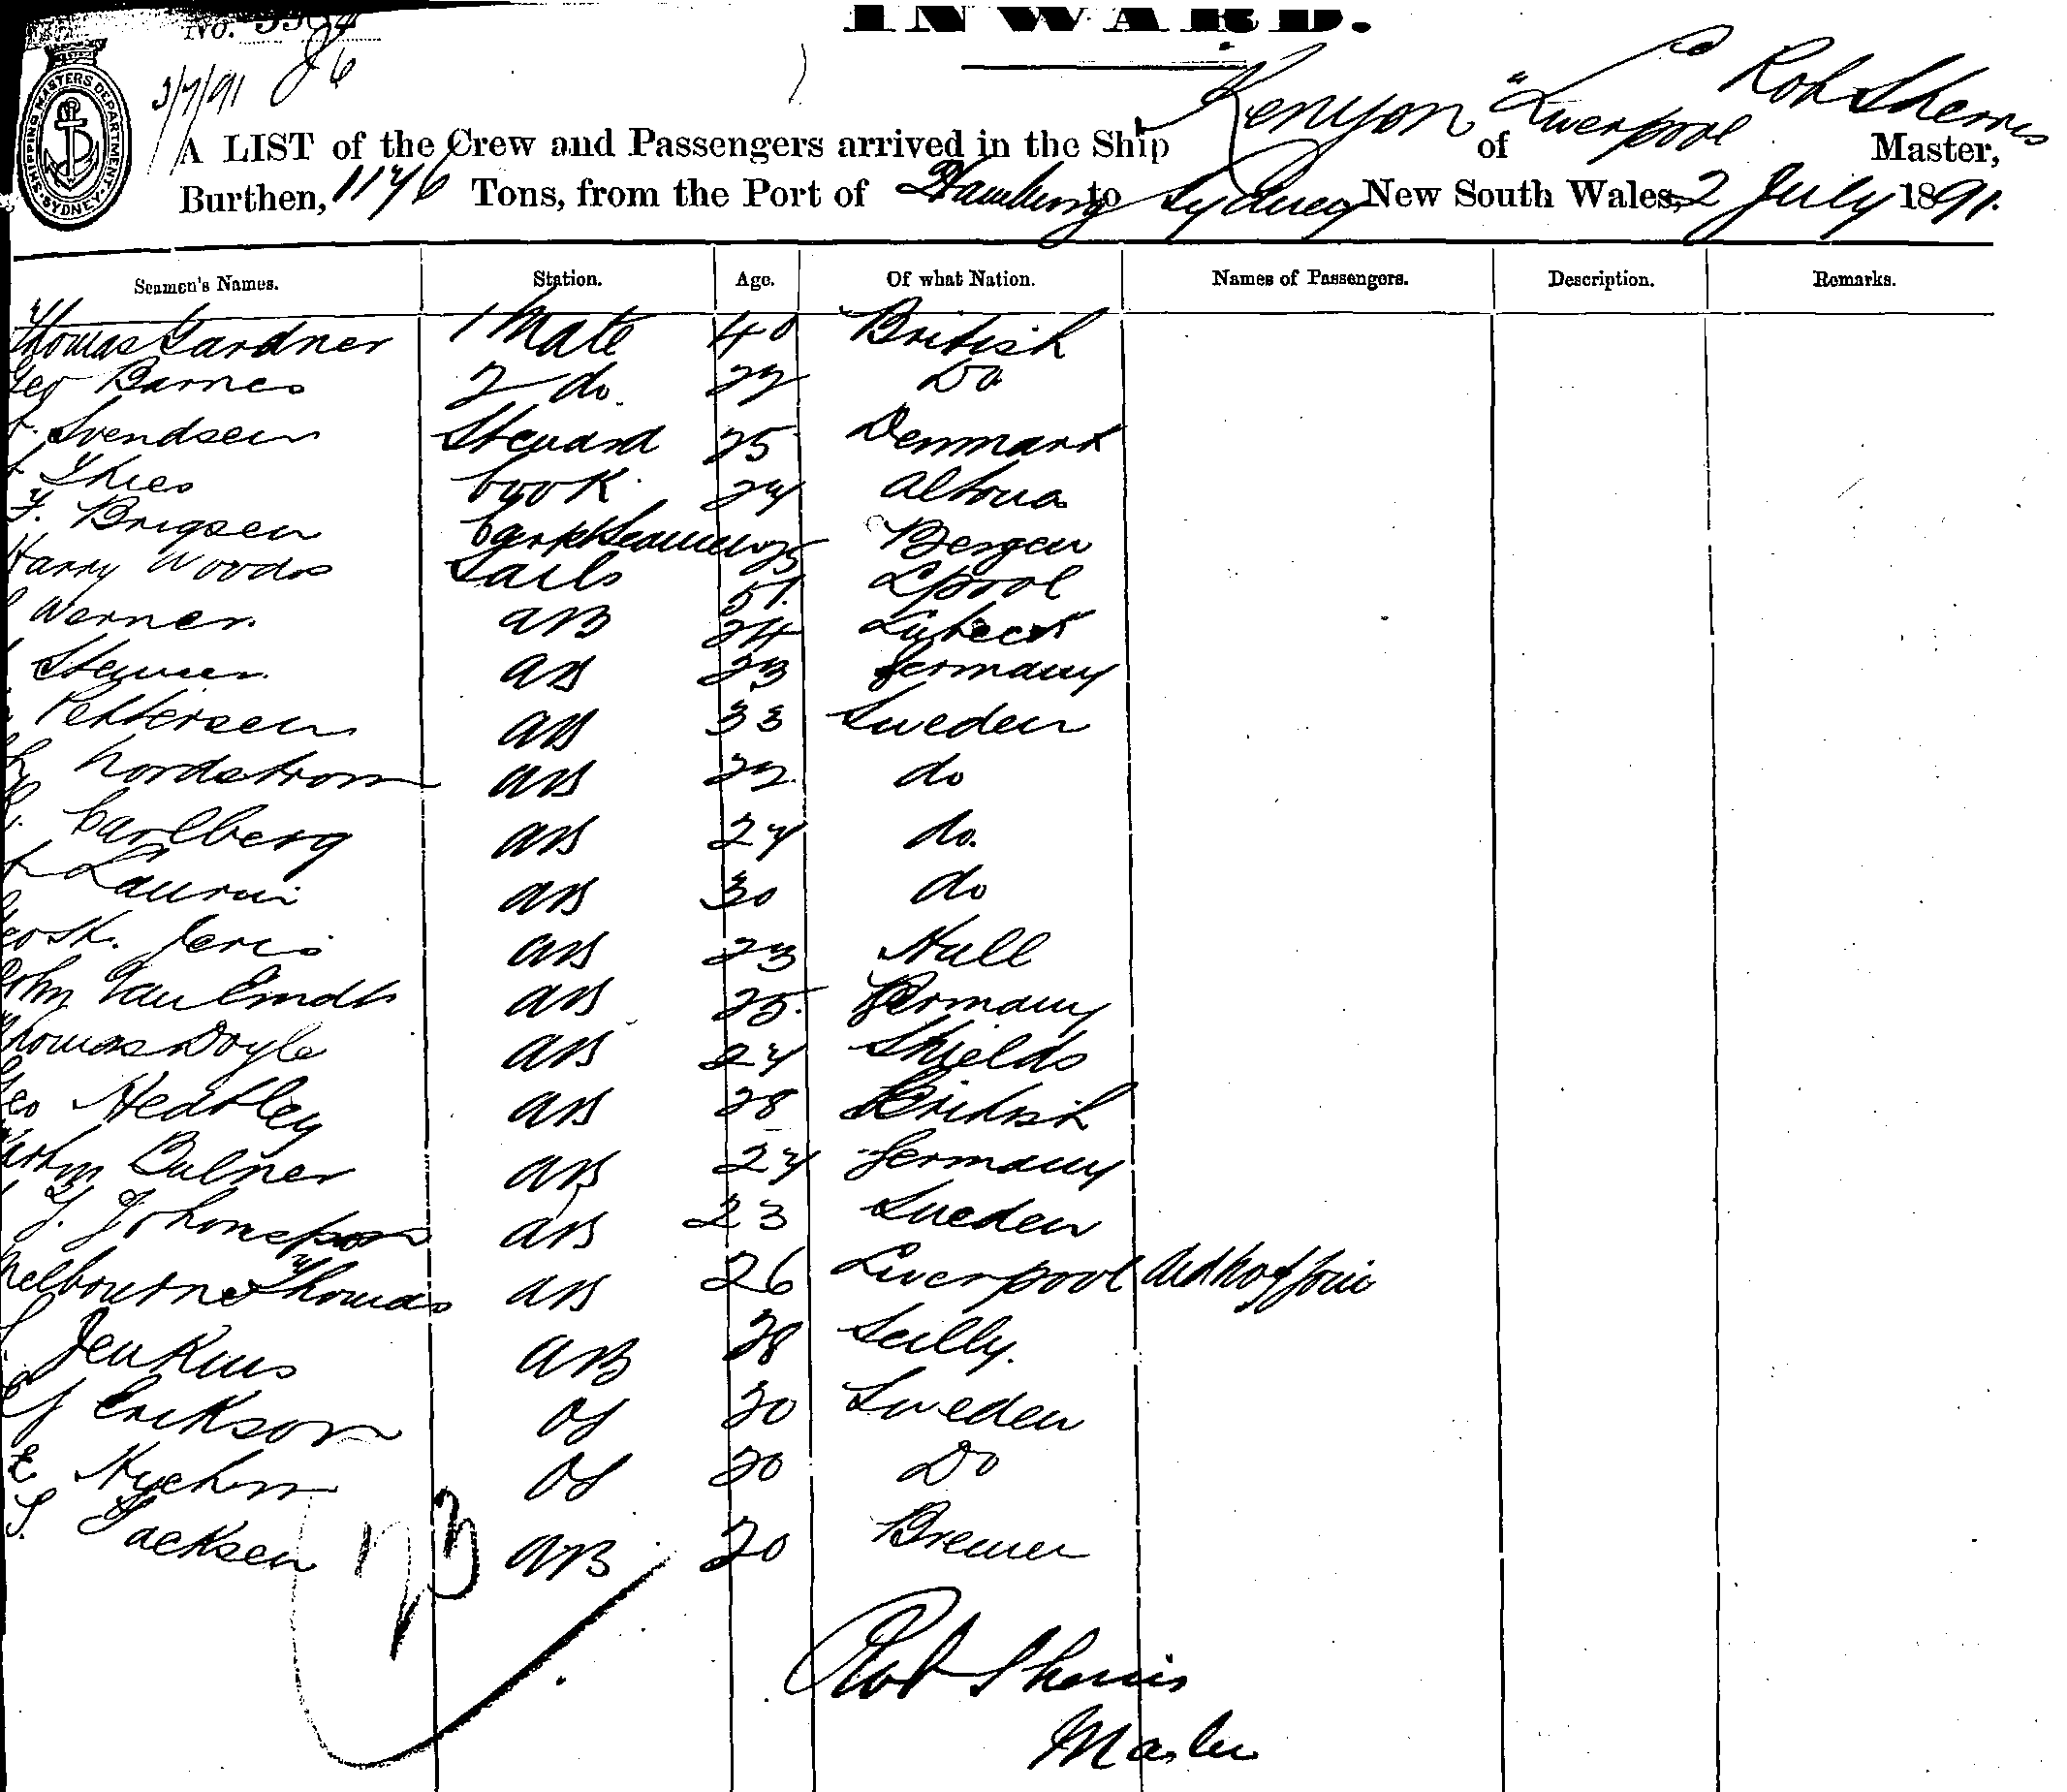 INWARD.
No.
3/7/91 86
SHIPPING MASTERS DEPARTMENT. SYDNEY.
A LIST of the Crew and Passengers arrived in the Ship Kenyon of Liverpool Rob Sherris Master,
Burthen, 1176 Tons, from the Port of Hamburg to Sydney New South Wales, 2 July 1891.
Seamen's Names. Station. Age. Of what Nation. Names of Passengers. Description. Remarks.
Thomas Gardner 1 Mate 40 British
Geo Barnes 2 do. 27 Do
Svendsen Steward 25 Denmark
Thies Cook 24 Altona
F. Brigsen Carp & Seaman 25 Bergen
Harry Woods Sails 51. Lpool
Werner. AB 24 Lubeck
AB 23 Germany
Pettersen AB 33 Sweden
Nordstrom AB 27. do
Carlberg AB 24 do.
AB 30 do
AB 23 Hull
John Van AB 25. Germany
Thomas Doyle AB 24 Shields
Geo Heatley AB 28 British
AB 24 Germany
AB 23 Sweden
Melbourne Thomas AB 26 Liverpool
Jenkins AB 28 Scilly.
Erikson OS 20 Sweden
E OS 20 Do
Jacksen AB 20 Bremen
23
Rob Sherris
Master